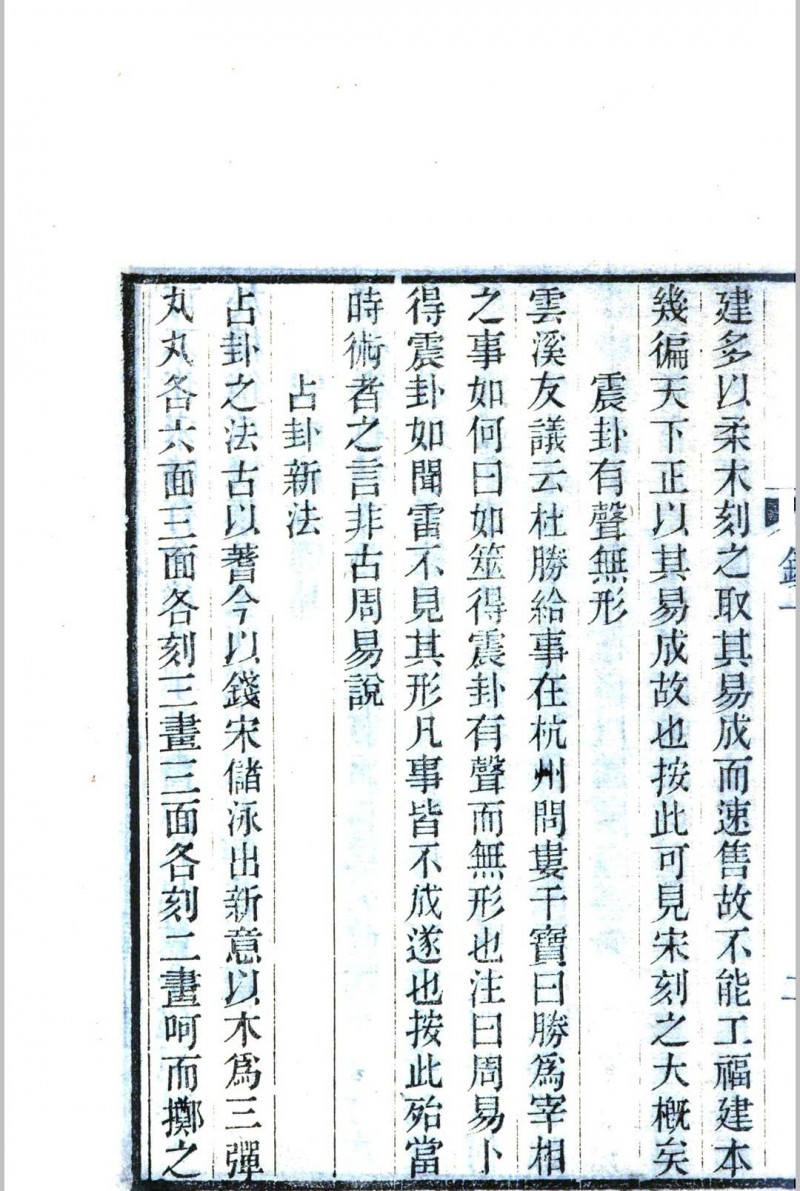 建多以柔木刻之取其易成而速售故不能工福建本
幾徧天下正以其易成故也按此可見宋刻之大槪矣
震卦有聲無形
雲溪友議云杜勝給事在杭州問婁千寶曰勝爲宰相
之事如何曰如筮得震卦有聲而無形也注曰周易卜
得震卦如聞雷不見其形凡事皆不成遂也按此殆當
時術者之言非古周易說
占卦新法
占卦之法古以蓍今以錢宋儲泳出新意以木爲三彈
丸丸各六面三面各刻三畫三面各刻二畫呵而擲之